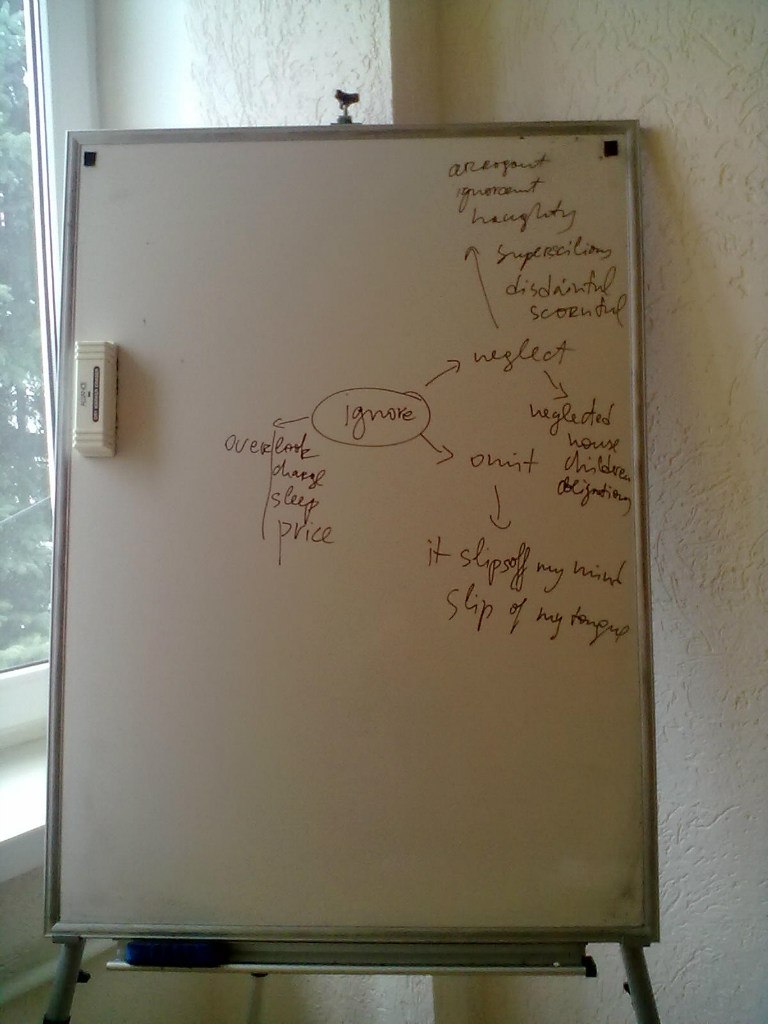 arrogant
ignorant
haughty
superscilious
disdainful
scornful
neglect
neglected
house
children
obligations
ignore
overlook
charge
sleep
price
omit
it slips off my mind
slip of my tongue